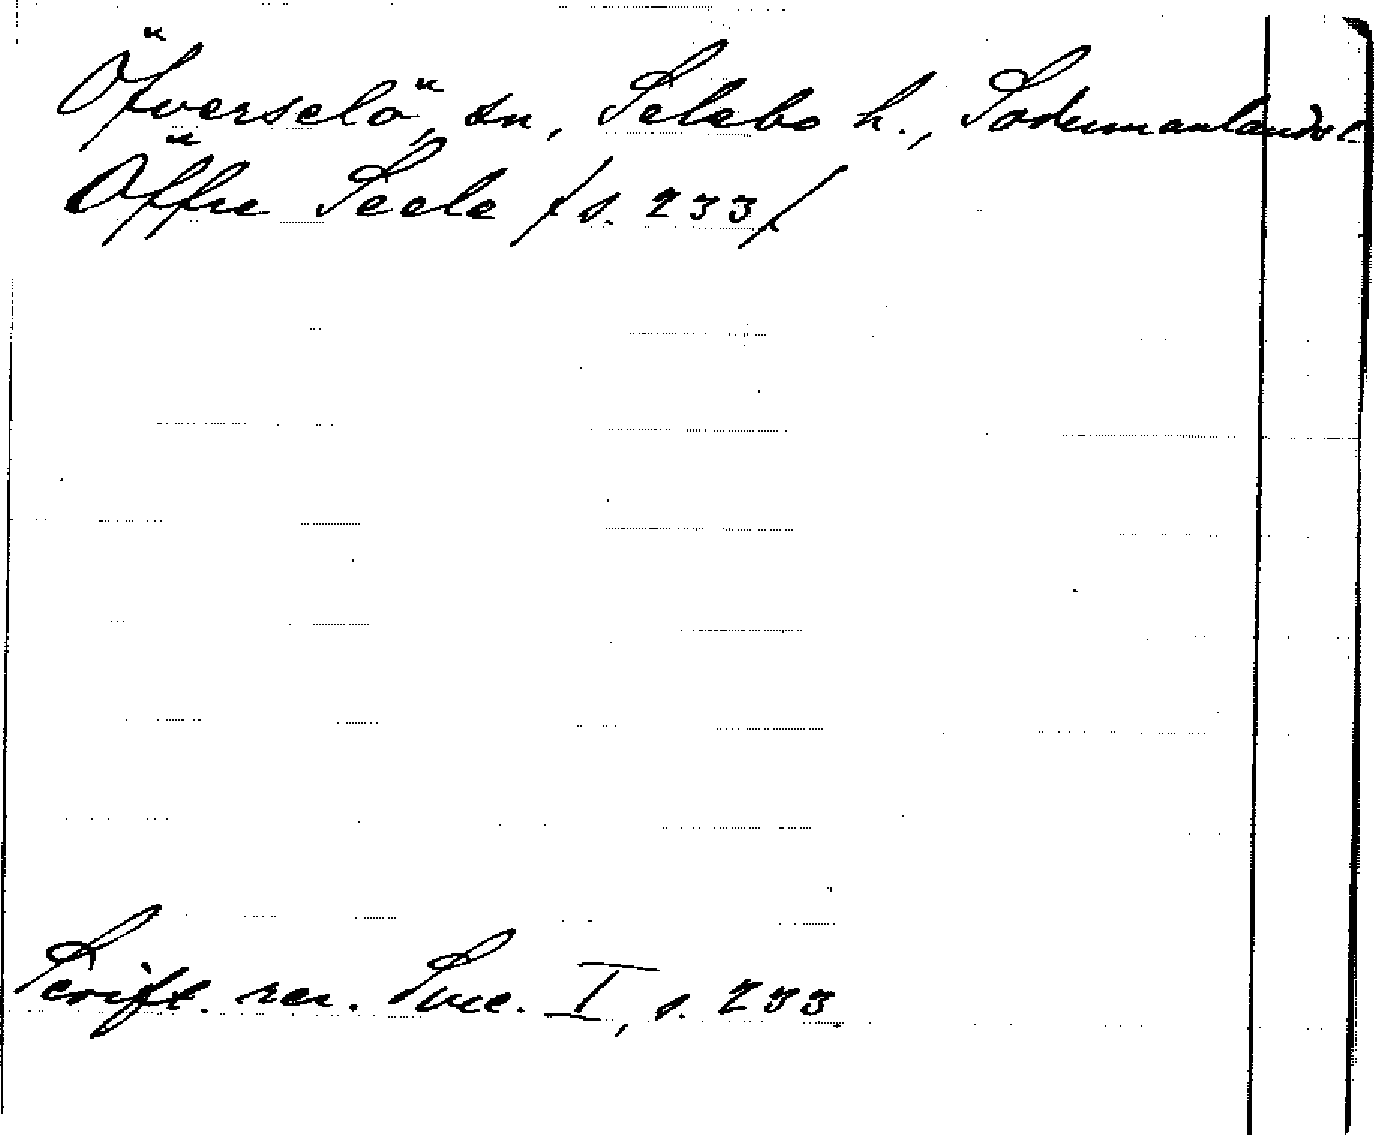 Öfverselö, sn, Selebo h., Södermanlands l.
Öffre Seele /s. 233/
Script. rer. Suec. I, s. 233